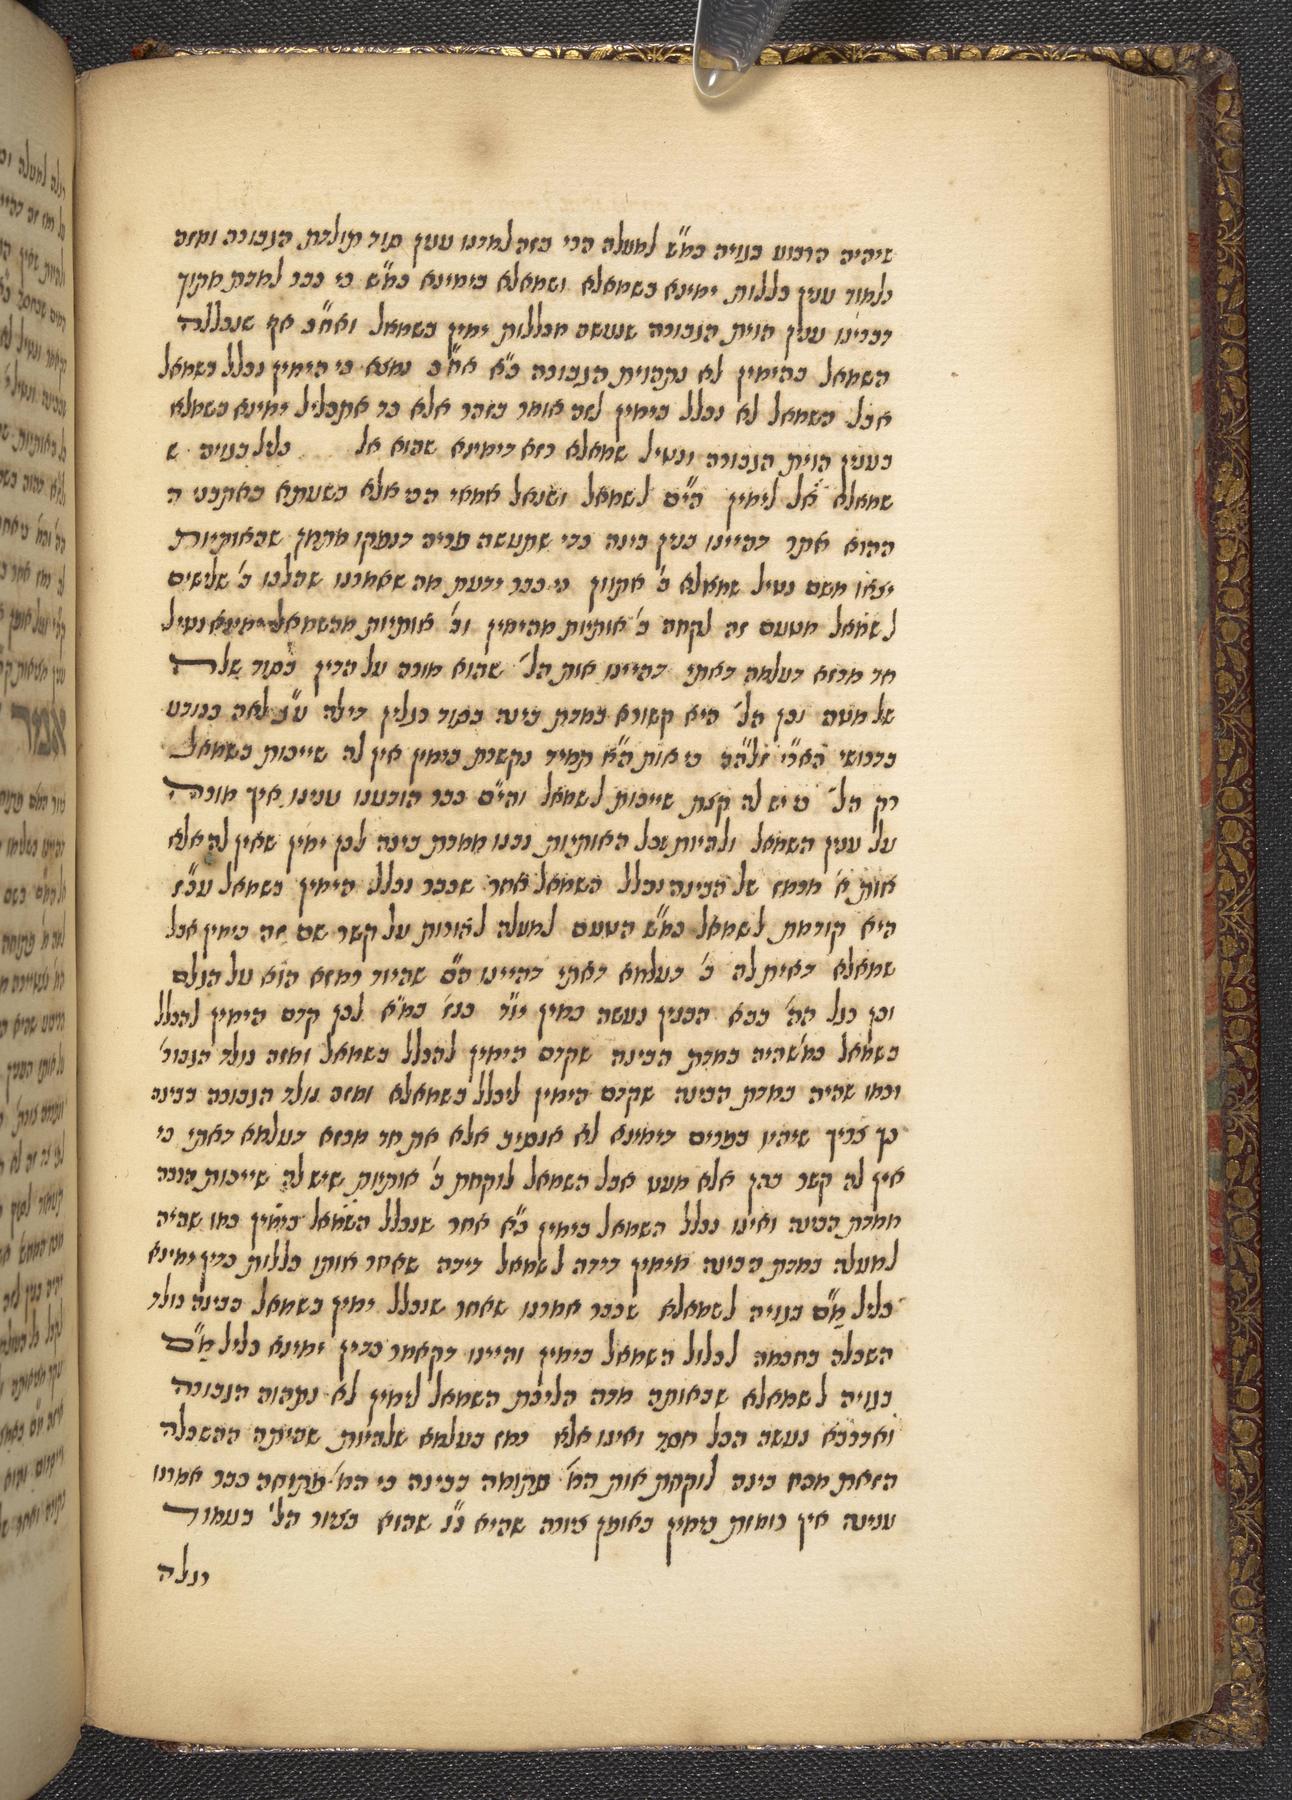 שיהיה הרבוע בנויה כמ״ש למעלה הרי בזה למדנו ענין סוד תולדת הגבורה ומזה
נלמוד ענין כללות ימינא בשמאלא ושמאלא בימינא כמ״ש כי כבר למדת מתוך
דברינו ענין הוית הגבורה שנעשה מכללות ימין בשמאל ואח״כ אף שנכללה
השמאל בהימין לא נתהוית הגבורה כ״א אח״כ נמצא כי הימין נכלל בשמאל
אבל השמאל לא נכלל בימין לזה אומר בזהר אלא כד אתכליל ימינא בשמלא
בענין הוית הגבורה ונטיל שמאלא רזא דימינא שהוא אל כליל בנויה ש
שמאלא אל לימין הי״ם לשמאל ושואל אמאי הכי אלא בשעתא
ההוא אתר דהיינו בנין בינה כדי שתעשה פריה דנפקו מתמן שהאותיות
יצאו משם נטיל שמאלא ב׳ אתוון כי כבר ידעת מה שאמרנו שהלכו ב׳ שלישים
לשמאל מטעם זה לקחה ב׳ אותיות מהימין וב׳ אותיות מהשמאל ימינא נטיל
חד מרזא דעלמא דאתי דהיינו אות הל׳ שהוא מורה על הדין בסוד שלה
של מטה וכן הל׳ היא קשורא במדת בינה בסוד רגלין דילה ע״כ לאה כנודע
בדרושי האר״י זלה״ה כי אות הא׳ תמיד נקשרת בימין אין לה שייכות בשמאל
רק הל׳ יש לה קצת שייכות לשמאל והי״ם כבר הודענו ענינו איך מורה
על ענין השמאל ולהיות שכל האותיות נבנו ממדת בינה לכן ימין שאין לה אלא
אות א׳ מרמז של הבינה נכלל השמאל אחר שכבר נכלל הימין בשמאל עכ״ז
היא קודמת לשמאל כמ״ש הטעם למעלה להורות על קשר שם זה בימין אבל
שמאלא דאית לה ב׳ בעלמא דאתי דהיינו ה״ם שהיוד רמזא הוא על הגלם
וכן רגל הה׳ בבא הבנין נעשה כמין יו״ד כנז׳ כמ״א לכן קדם הימין להכלל
בשמאל כמ״שהיה במדת הבינה שקדם הימין להכלל בשמאל ומזה נולד הגבור׳
וכמו שהיה במדת הבינה שקדם הימין ליכלל בשמאלא ומזה נולד הגבורה בבינה
כך צריך שיהיו במדים דימינא לא אנסיב אלא את חד מרזא דעלמא דאתי כי
אין לה קשר בהן אלא מעט אבל השמאל לוקחת ב׳ אותיות שיש לה שייכות הרבה
ממדת הבינה ואינו נכלל השמאל בימין כ״א אחר שנכלל השמאל בימין כמו שהיה
למעלה במדת הבינה מימין דידה לשמאל דידה שאחר אותו כללות כדין ימינא
כליל מ״ם בנויה לשמאלא שכבר אמרנו שאחר שנכלל ימין בשמאל בבינה נולד
השכלה בחכמה לכלול השמאל בימין והיינו דקאמר כדין ימינא כליל מ״ם
בנויה לשמאלא שבאותה מדה הליכת השמאל לימין לא נתהוה הגבורה
ואדרבא נעשה הכל חסד ואינו אלא רמז בעלמא שלהיות שהיתה ההשכלה
הזאת מכח בינה לוקחת אות המ׳ סתומה בבינה כי המ׳ פתוחה כבר אמרנו
ענינה אין רומות בימין באומן צורה שהיא נ״ו שהוא בציור הל׳ בעמוד
רגלה